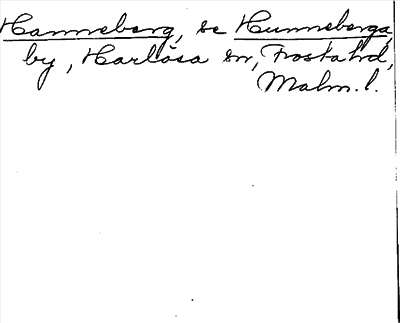 Hanneberg, se Hunneberga
by, Harlösa sn, Frosta hd,
Malm. l.